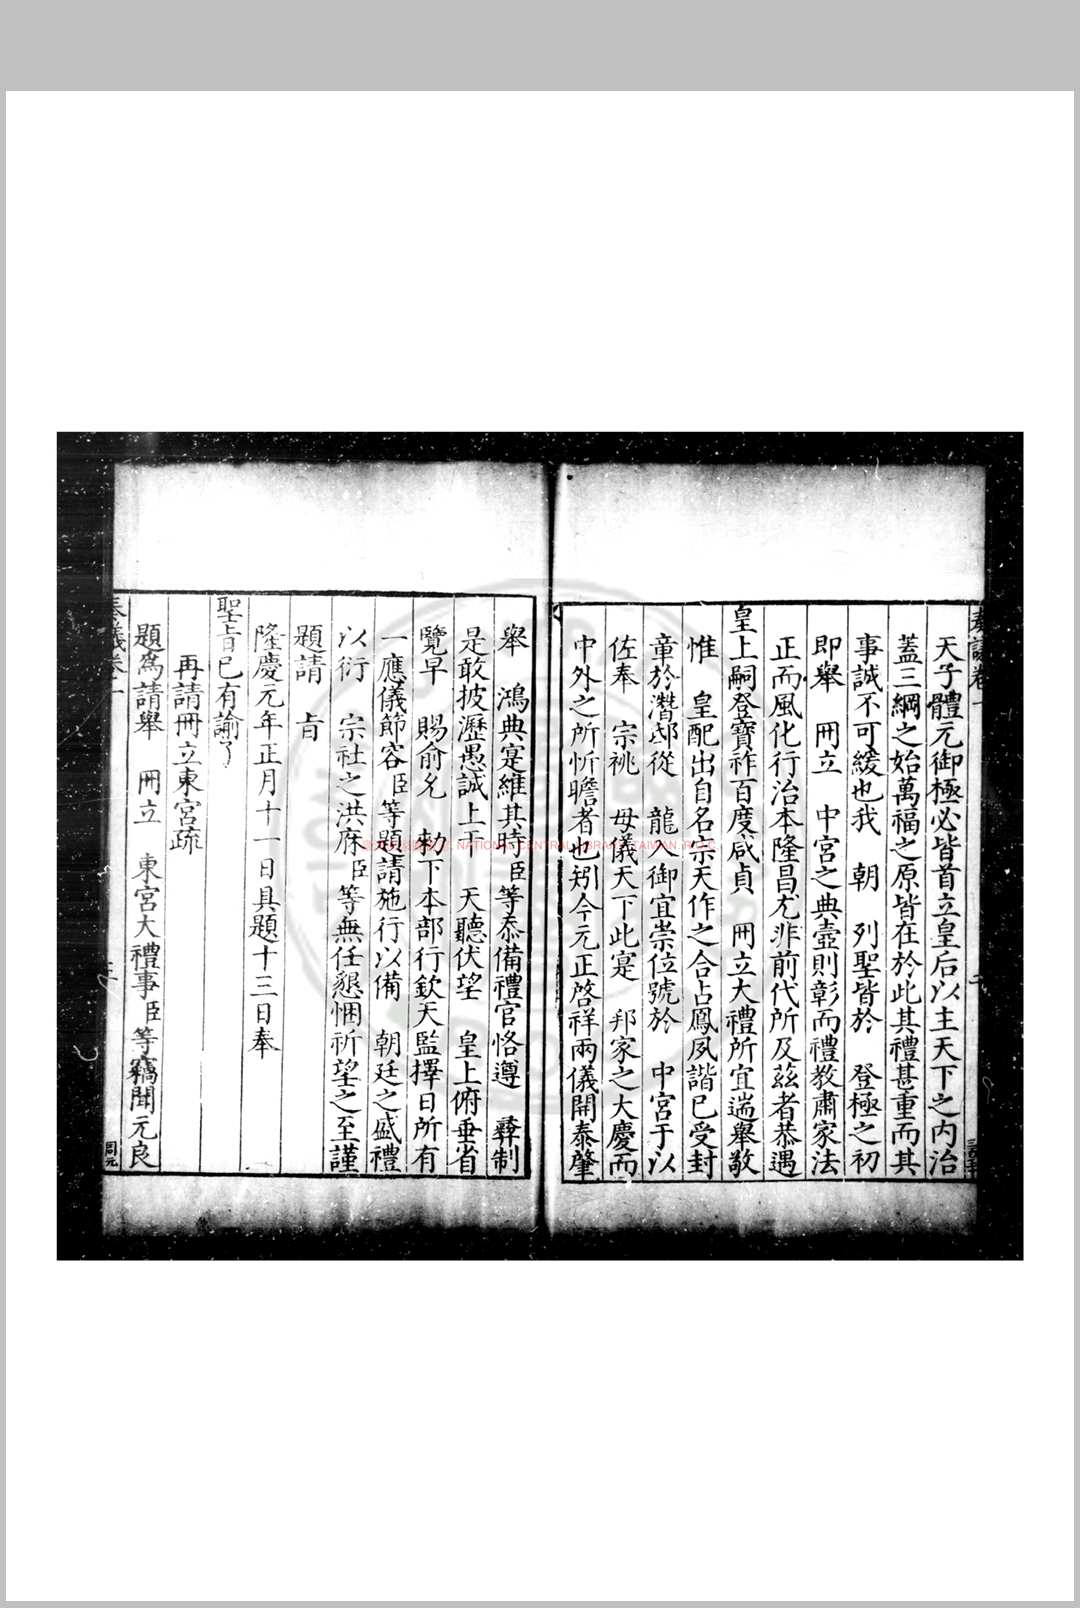 天子體元御極必皆首立皇后以主天下之內治
蓋三綱之始萬福之原皆在於此其禮甚重而其
事誠不可緩也我 朝 列聖皆於 登極之初
即舉 冊立 中宮之典壼則彰而禮教肅家法
正而風化行治本隆昌尤非前代所及茲者恭遇
皇上嗣登寶祚百度咸貞 冊立大禮所宜遄舉敬
惟 皇配出自名宗天作之合占鳳夙諧已受封
章於潛邸從 龍入御宜崇位號於 中宮于以
佐奉 宗祧 母儀天下此寔 邦家之大慶而
中外之所忻瞻者也矧今元正啓祥兩儀開泰肇
舉 鴻典寔維其時臣等忝備禮官恪遵 彞制
是敢披瀝愚誠上干 天聽伏望 皇上俯垂省
覽早 賜俞允 勑下本部行欽天監擇日所有
一應儀節容臣等題請施行以備 朝廷之盛禮
以衍 宗社之洪庥臣等無任懇悃祈望之至謹
題請 旨
隆慶元年正月十一日具題十三日奉
聖旨已有諭了
再請冊立東宮疏
題爲請舉 冊立 東宮大禮事臣等竊聞元良
奏議卷一
周元
NATIONAL CENTRAL LIBRARY, TAIWAN (R.O.C.)